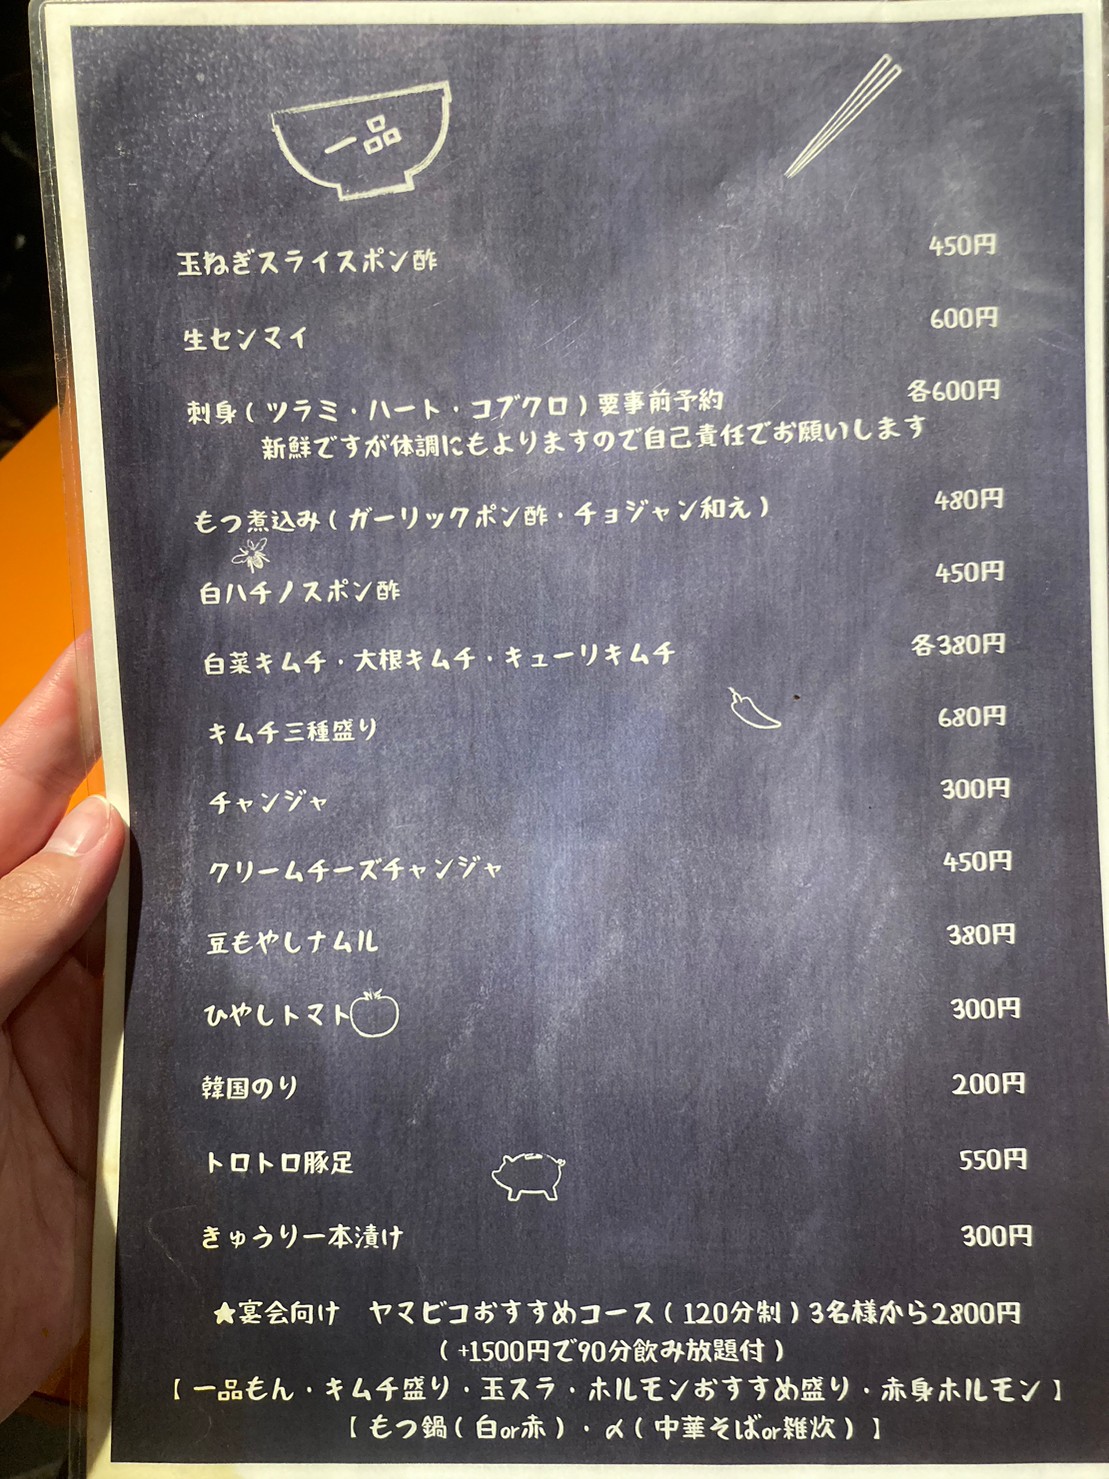 一品
玉ねぎスライスポン酢 450円
生センマイ 600円
刺身(ツラミ・ハート・コブクロ)要事前予約 各600円
新鮮ですが体調にもよりますので自己責任でお願いします
もつ煮込み(ガーリックポン酢・チョジャン和え) 480円
白ハチノスポン酢 450円
白菜キムチ・大根キムチ・キューリキムチ 各380円
キムチ三種盛り 680円
チャンジャ 300円
クリームチーズチャンジャ 450円
豆もやしナムル 380円
ひやしトマト 300円
韓国のり 200円
トロトロ豚足 550円
きゅうり一本漬け 300円
★宴会向け ヤマビコおすすめコース(120分制)3名様から2800円
(+1500円で90分飲み放題付)
【一品もん・キムチ盛り・玉スラ・ホルモンおすすめ盛り・赤身ホルモン】
【もつ鍋(白or赤)・〆(中華そばor雑炊)】